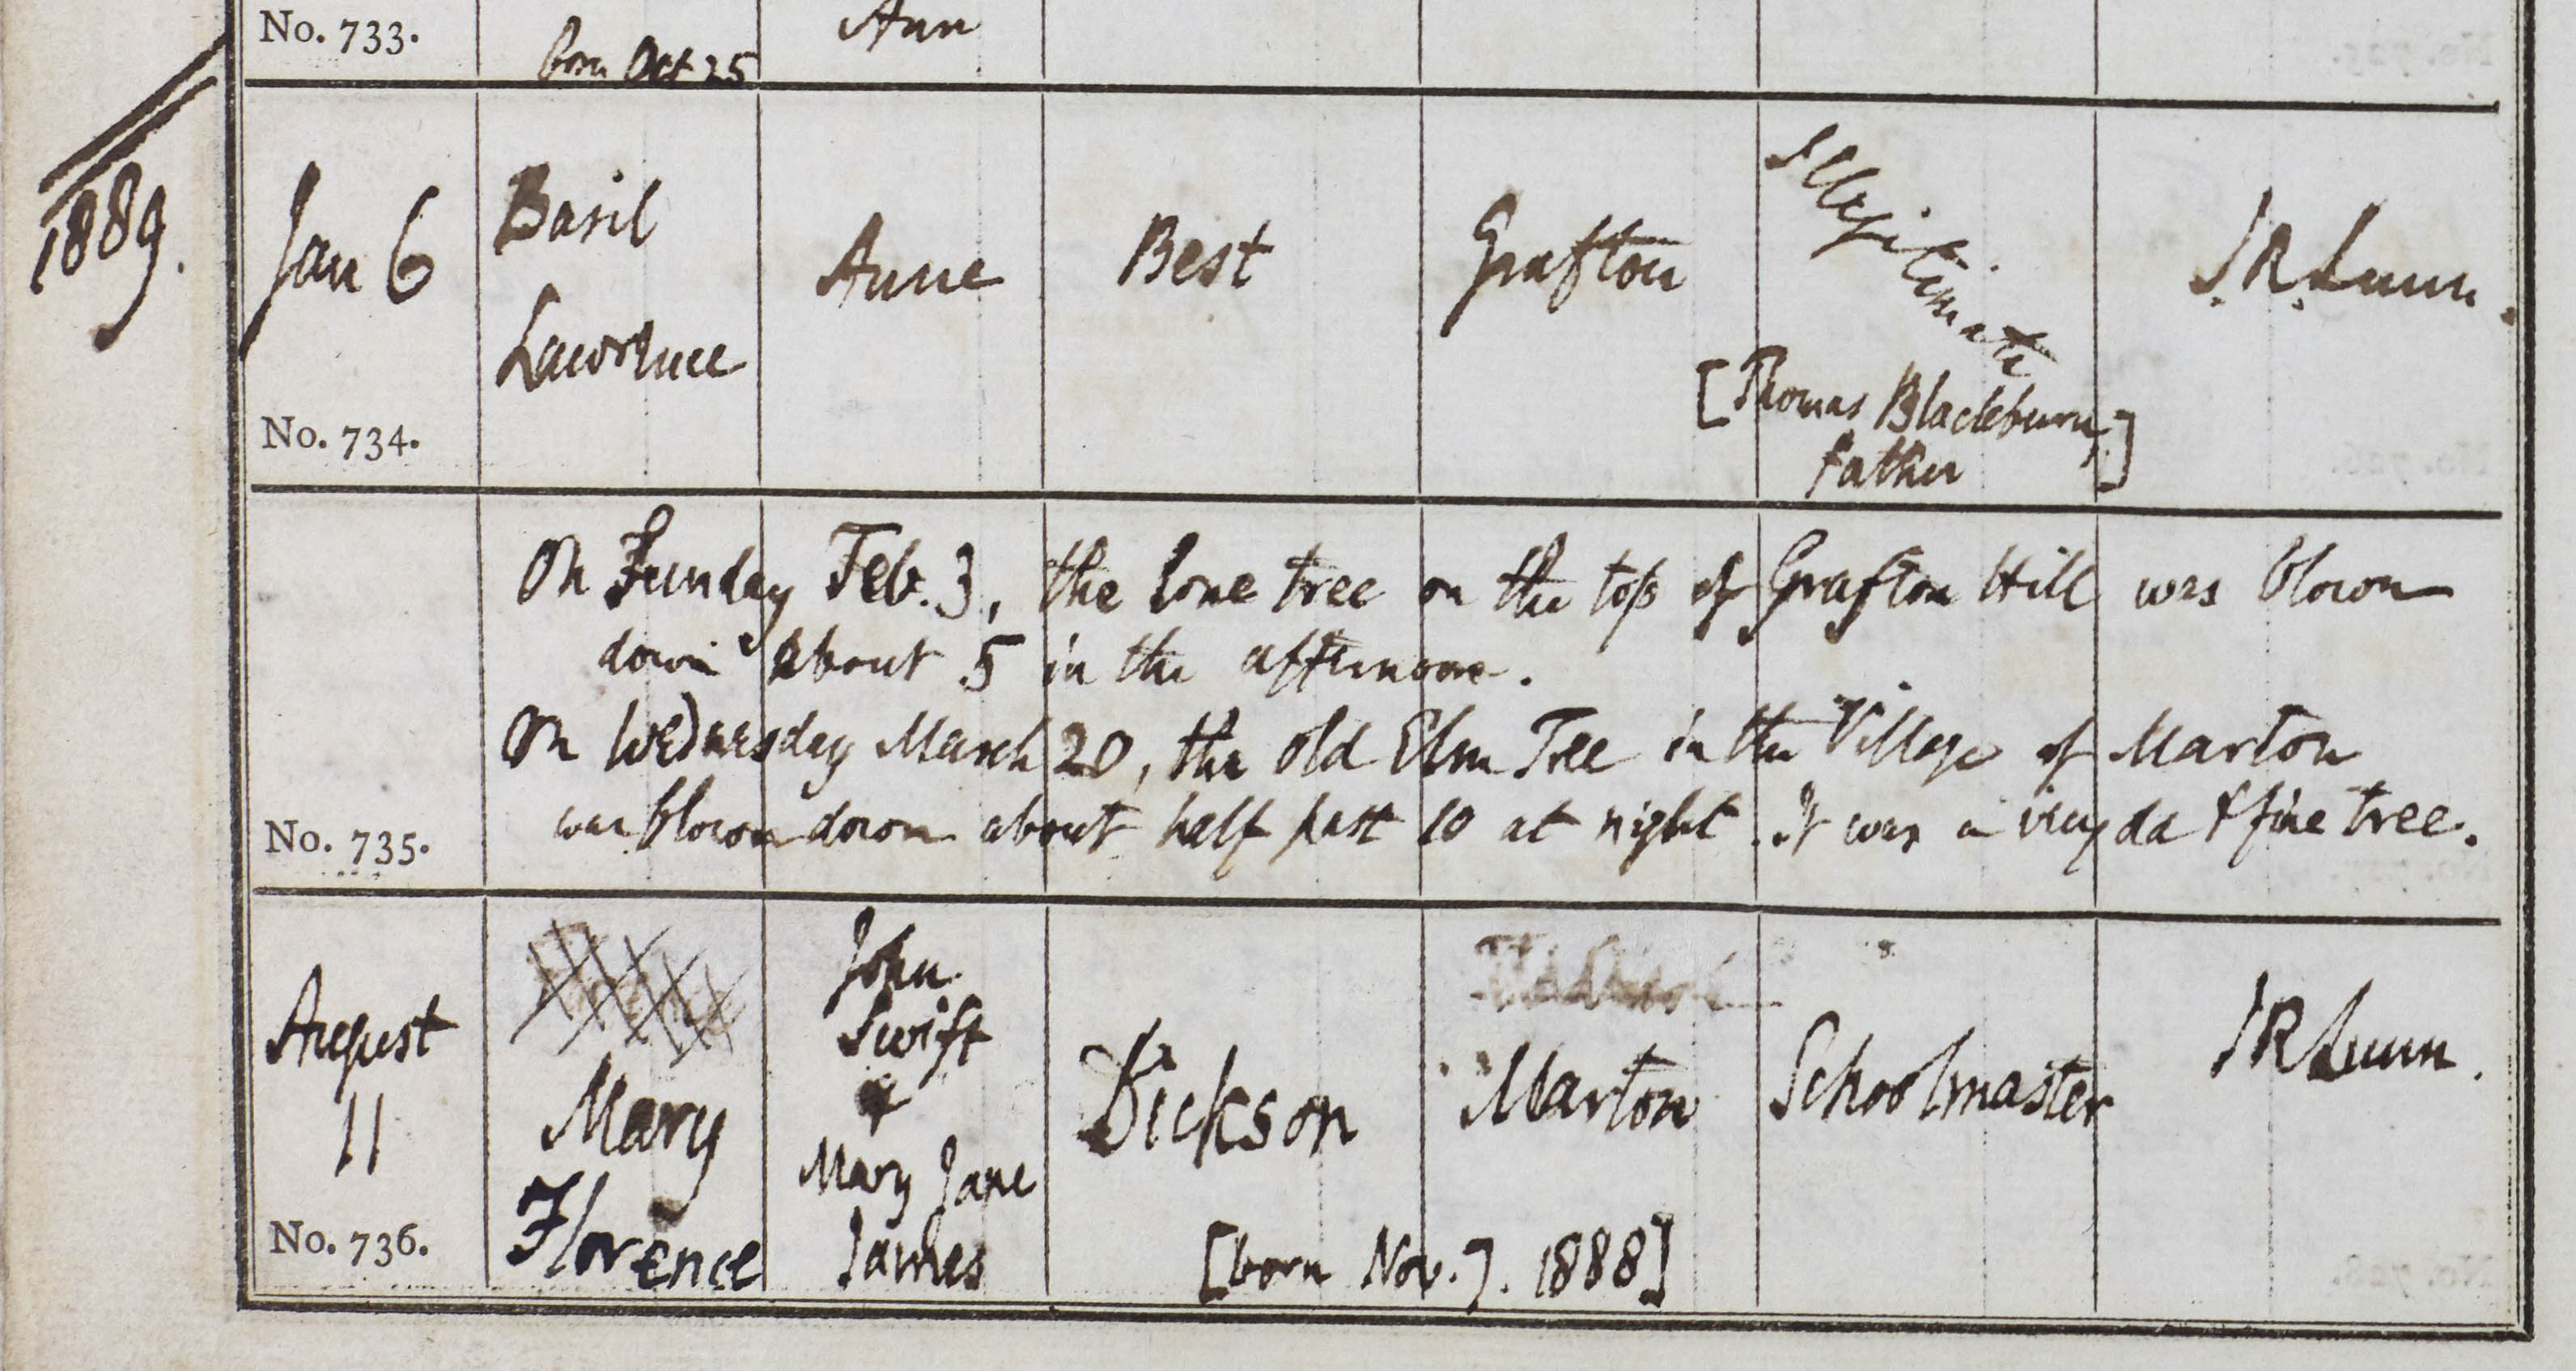 No. 733.
born Oct 25
Ann
1889.
Jan 6
No. 734.
Basil
Lawrence
Anne
Best
Grafton
Illegitimate
[Thomas Blackburn,]
father
J. R. Lunn.
No. 735.
On Sunday Feb. 3, the lone tree on the top of Grafton Hill was blown
down about 5 in the afternoon.
On Wednesday March 20, the old Elm Tree in the Village of Marton
was blown down about half past 10 at night. It was a very & fine tree.
August
11
No. 736.
Mary
Florence
John
Swift
&
Mary Jane
James
Dickson
Marton
[born Nov. 7. 1888]
Schoolmaster
J R Lunn.